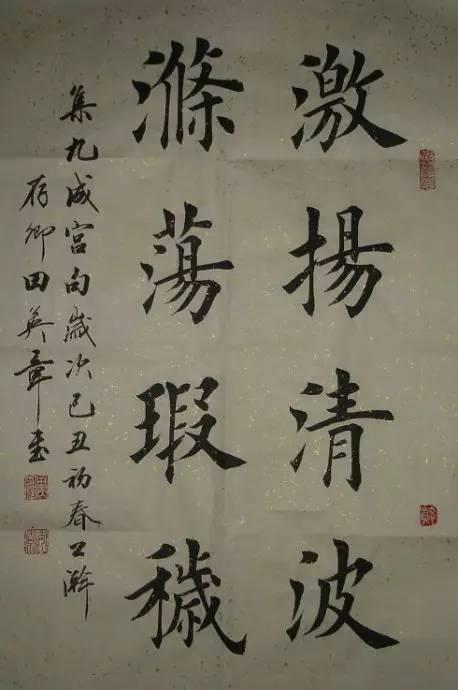 激揚清波
滌蕩瑕穢
集九成宮句歲次己丑初春上澣
存卿田英章書